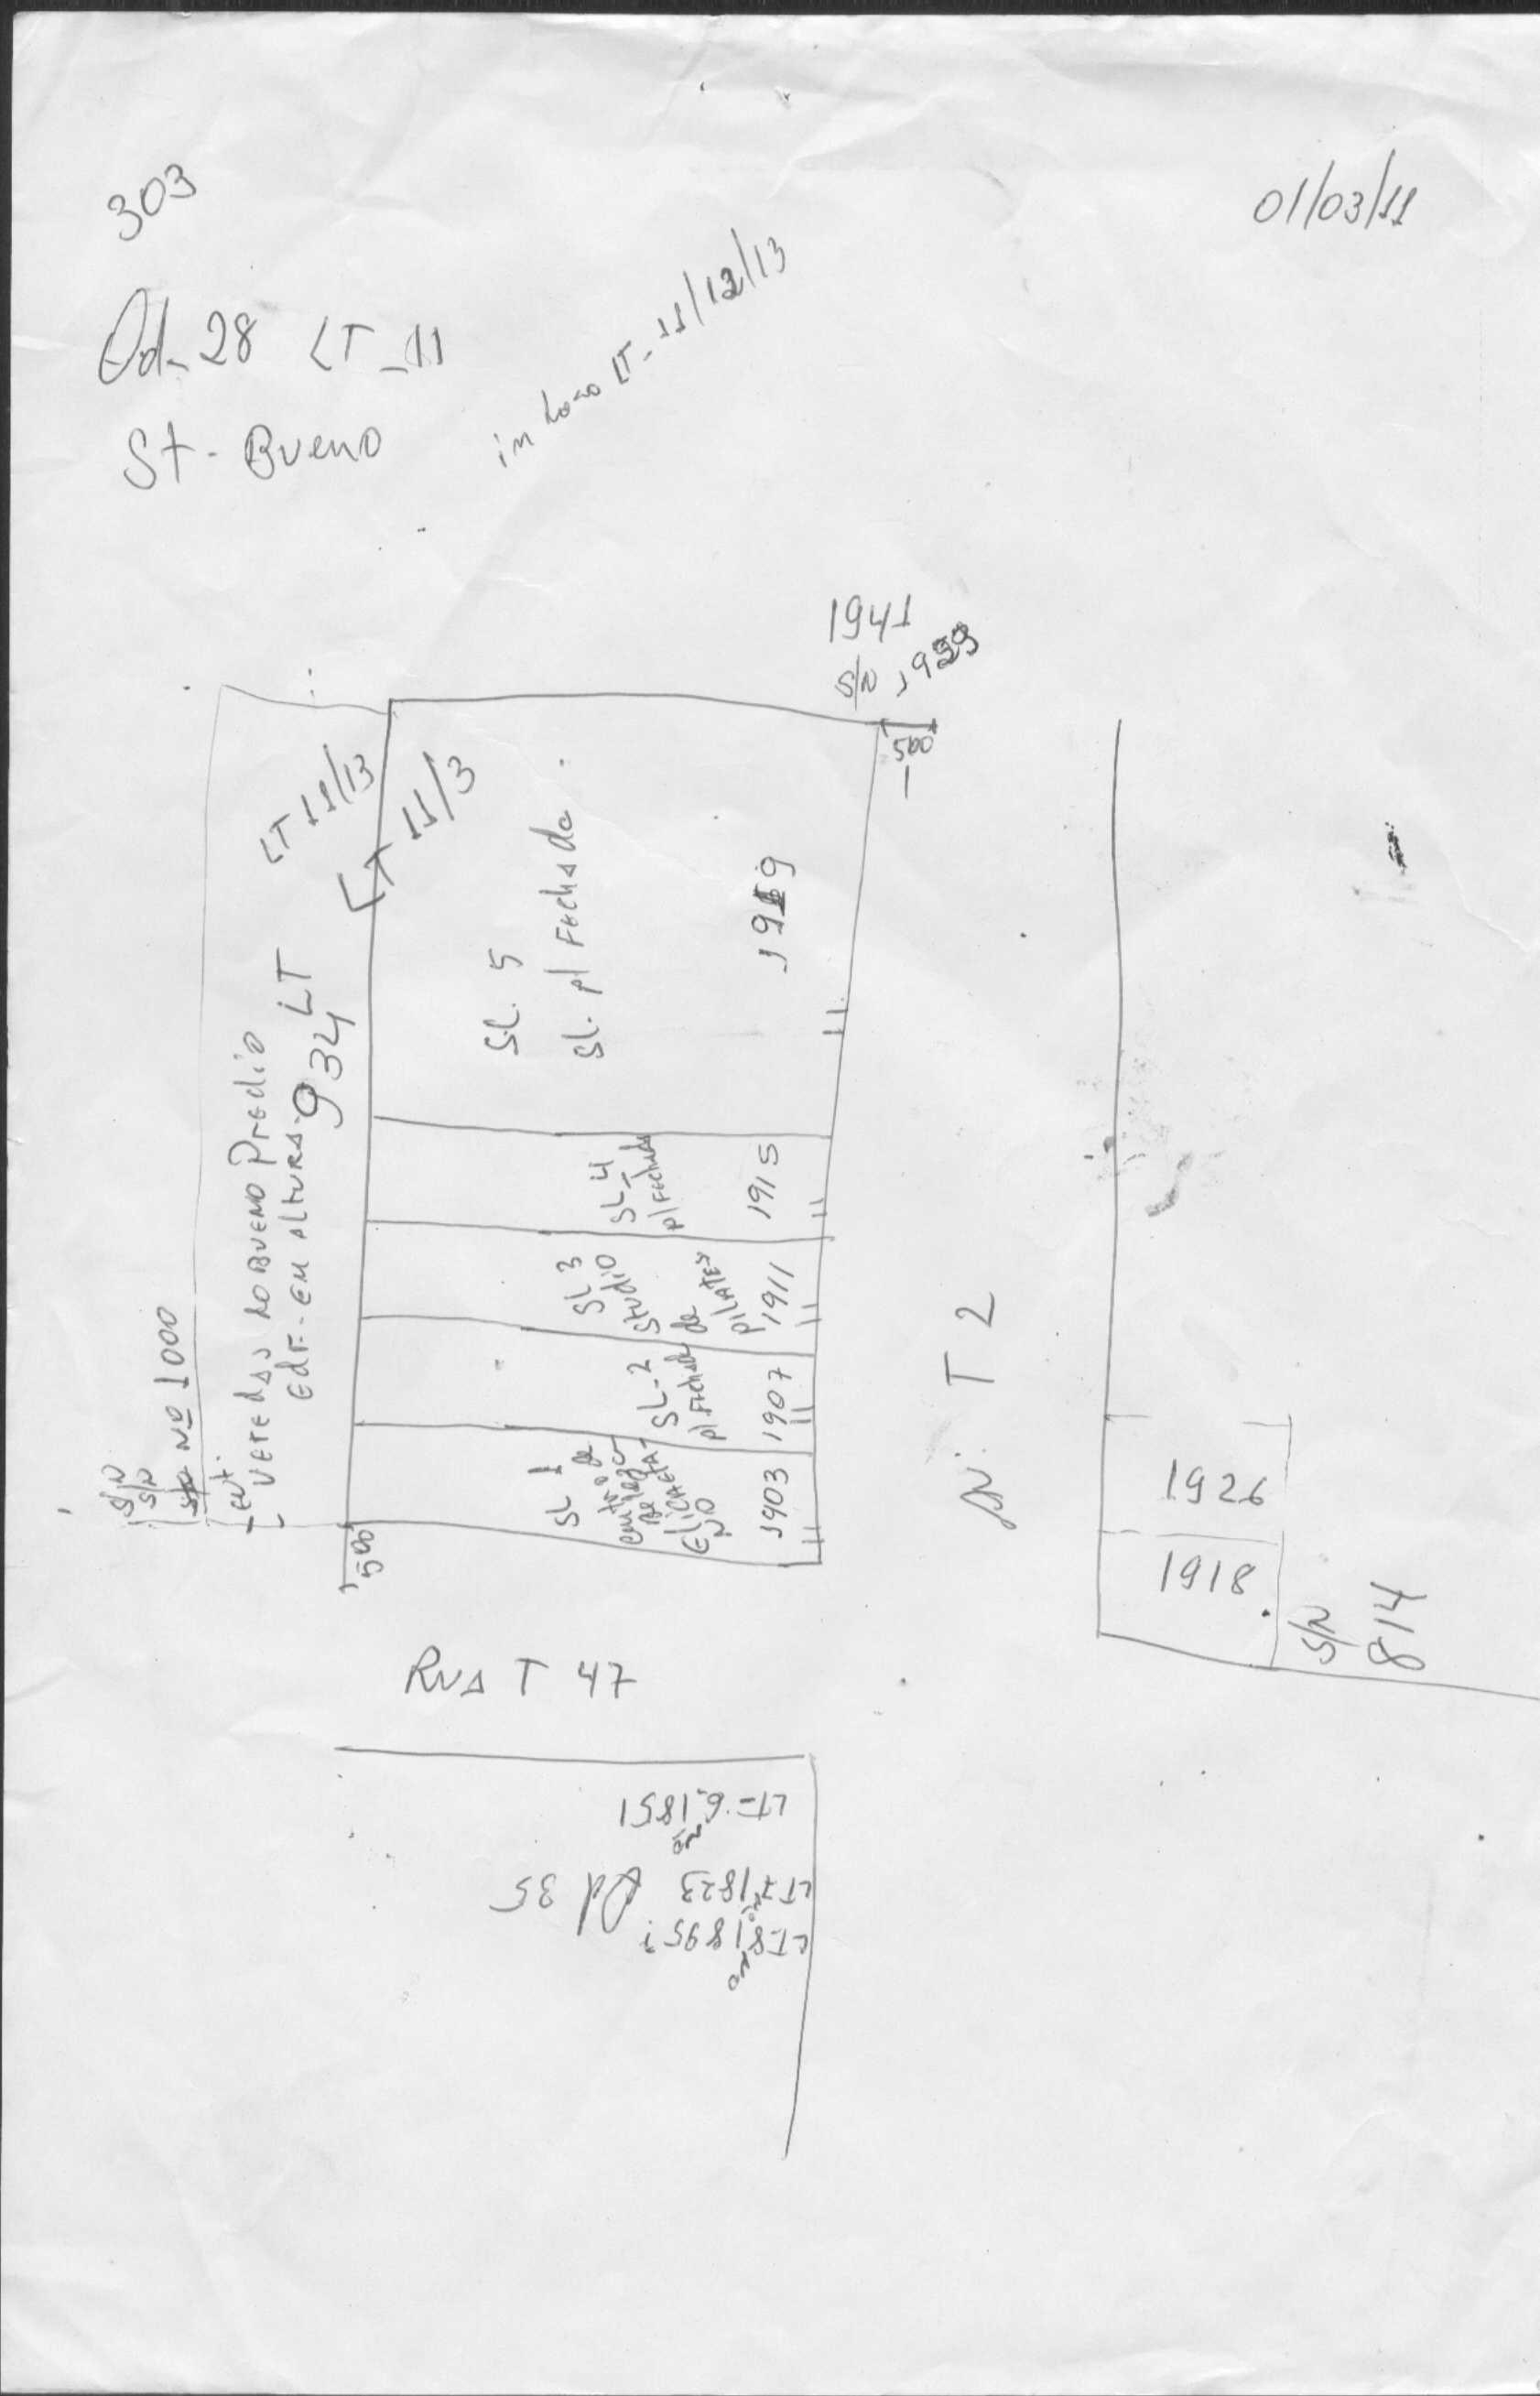 303
01/03/11
Qd-28 LT-11
St. Bueno
in loco LT-11/12/13
1941
S/N
500
LT 11/13
LT 11/3
SL. 5
SL. p/ Fechada
934 LT
Predio
Edf. EM ALTURA
S/N
S/N
Nº 1000
ENT.
SL 4
p/ Fechada
1915
SL 3
Studio
de
PILATES
1911
SL-2
p/ Fechada
1907
SL 1
1903
500
AV. T 2
1926
1918
S/N
814
RUA T 47
LT-6 1851
LT 7 1873
Qd 35
LT-8 1895